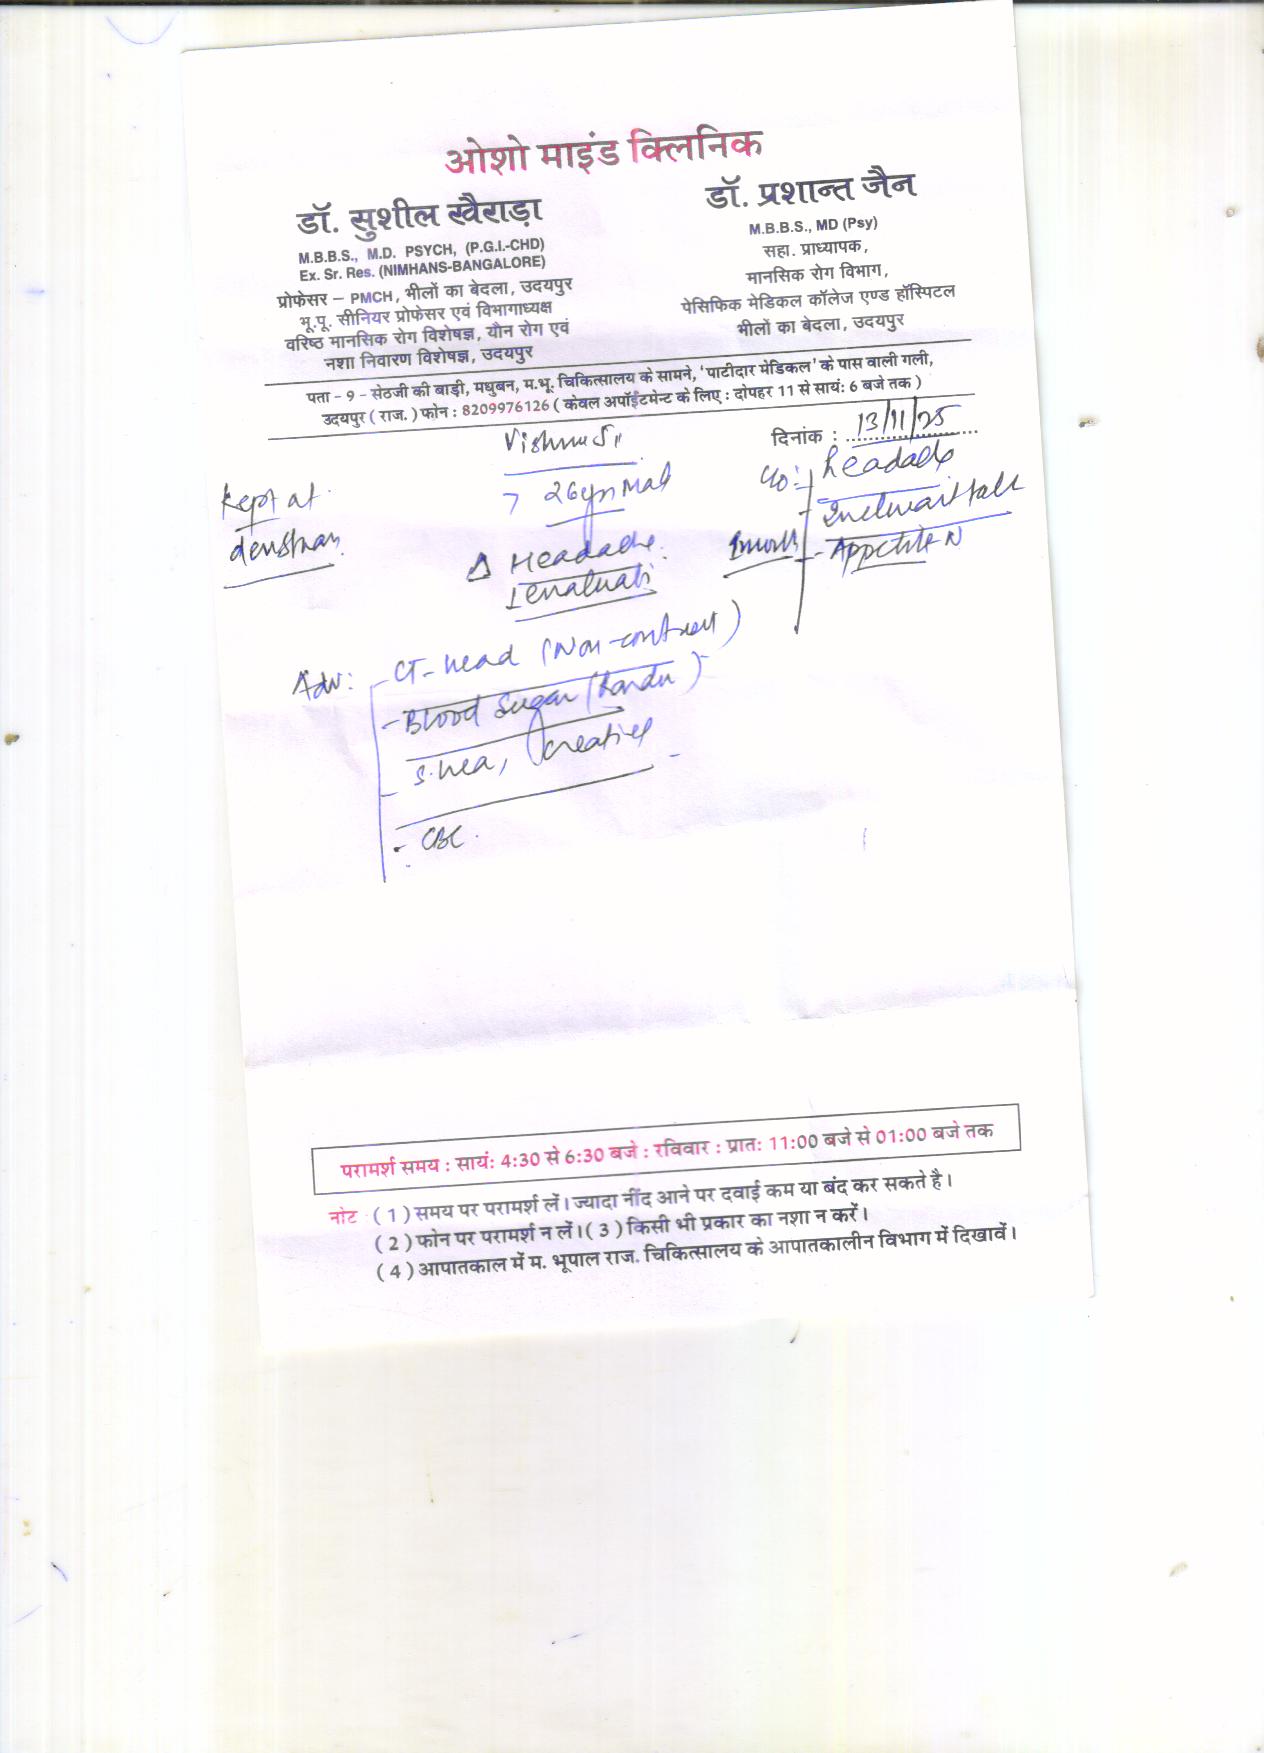 ओशो माइंड क्लिनिक
डॉ. सुशील खैराड़ा
M.B.B.S., M.D. PSYCH, (P.G.I.-CHD)
Ex. Sr. Res. (NIMHANS-BANGALORE)
प्रोफेसर – PMCH, भीलों का बेदला, उदयपुर
भू.पू. सीनियर प्रोफेसर एवं विभागाध्यक्ष
वरिष्ठ मानसिक रोग विशेषज्ञ, यौन रोग एवं
नशा निवारण विशेषज्ञ, उदयपुर
डॉ. प्रशान्त जैन
M.B.B.S., MD (Psy)
सहा. प्राध्यापक,
मानसिक रोग विभाग,
पेसिफिक मेडिकल कॉलेज एण्ड हॉस्पिटल
भीलों का बेदला, उदयपुर
पता – 9 – सेठजी की बाड़ी, मधुबन, म.भू. चिकित्सालय के सामने, 'पाटीदार मेडिकल' के पास वाली गली,
उदयपुर ( राज. ) फोन : 8209976126 ( केवल अपॉइंटमेन्ट के लिए : दोपहर 11 से सायं: 6 बजे तक )
दिनांक : 13/11/25
Vishnu
26yr Male
Kept at
c/o:- headache
- Appetite N
Δ Headache
Adv: - CT-head (Non-contrast)
- Blood Sugar (Random)
- S. urea, creatine
- CBC.
परामर्श समय : सायं: 4:30 से 6:30 बजे : रविवार : प्रात: 11:00 बजे से 01:00 बजे तक
नोट : ( 1 ) समय पर परामर्श लें। ज्यादा नींद आने पर दवाई कम या बंद कर सकते है।
( 2 ) फोन पर परामर्श न लें। ( 3 ) किसी भी प्रकार का नशा न करें।
( 4 ) आपातकाल में म. भूपाल राज. चिकित्सालय के आपातकालीन विभाग में दिखावें।